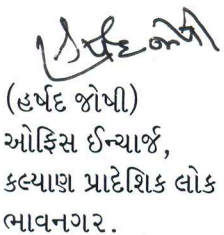 હર્ષદ જોષી
(હર્ષદ જોષી)
ઓફિસ ઈન્ચાર્જ,
કલ્યાણ પ્રાદેશિક લોક
ભાવનગર.